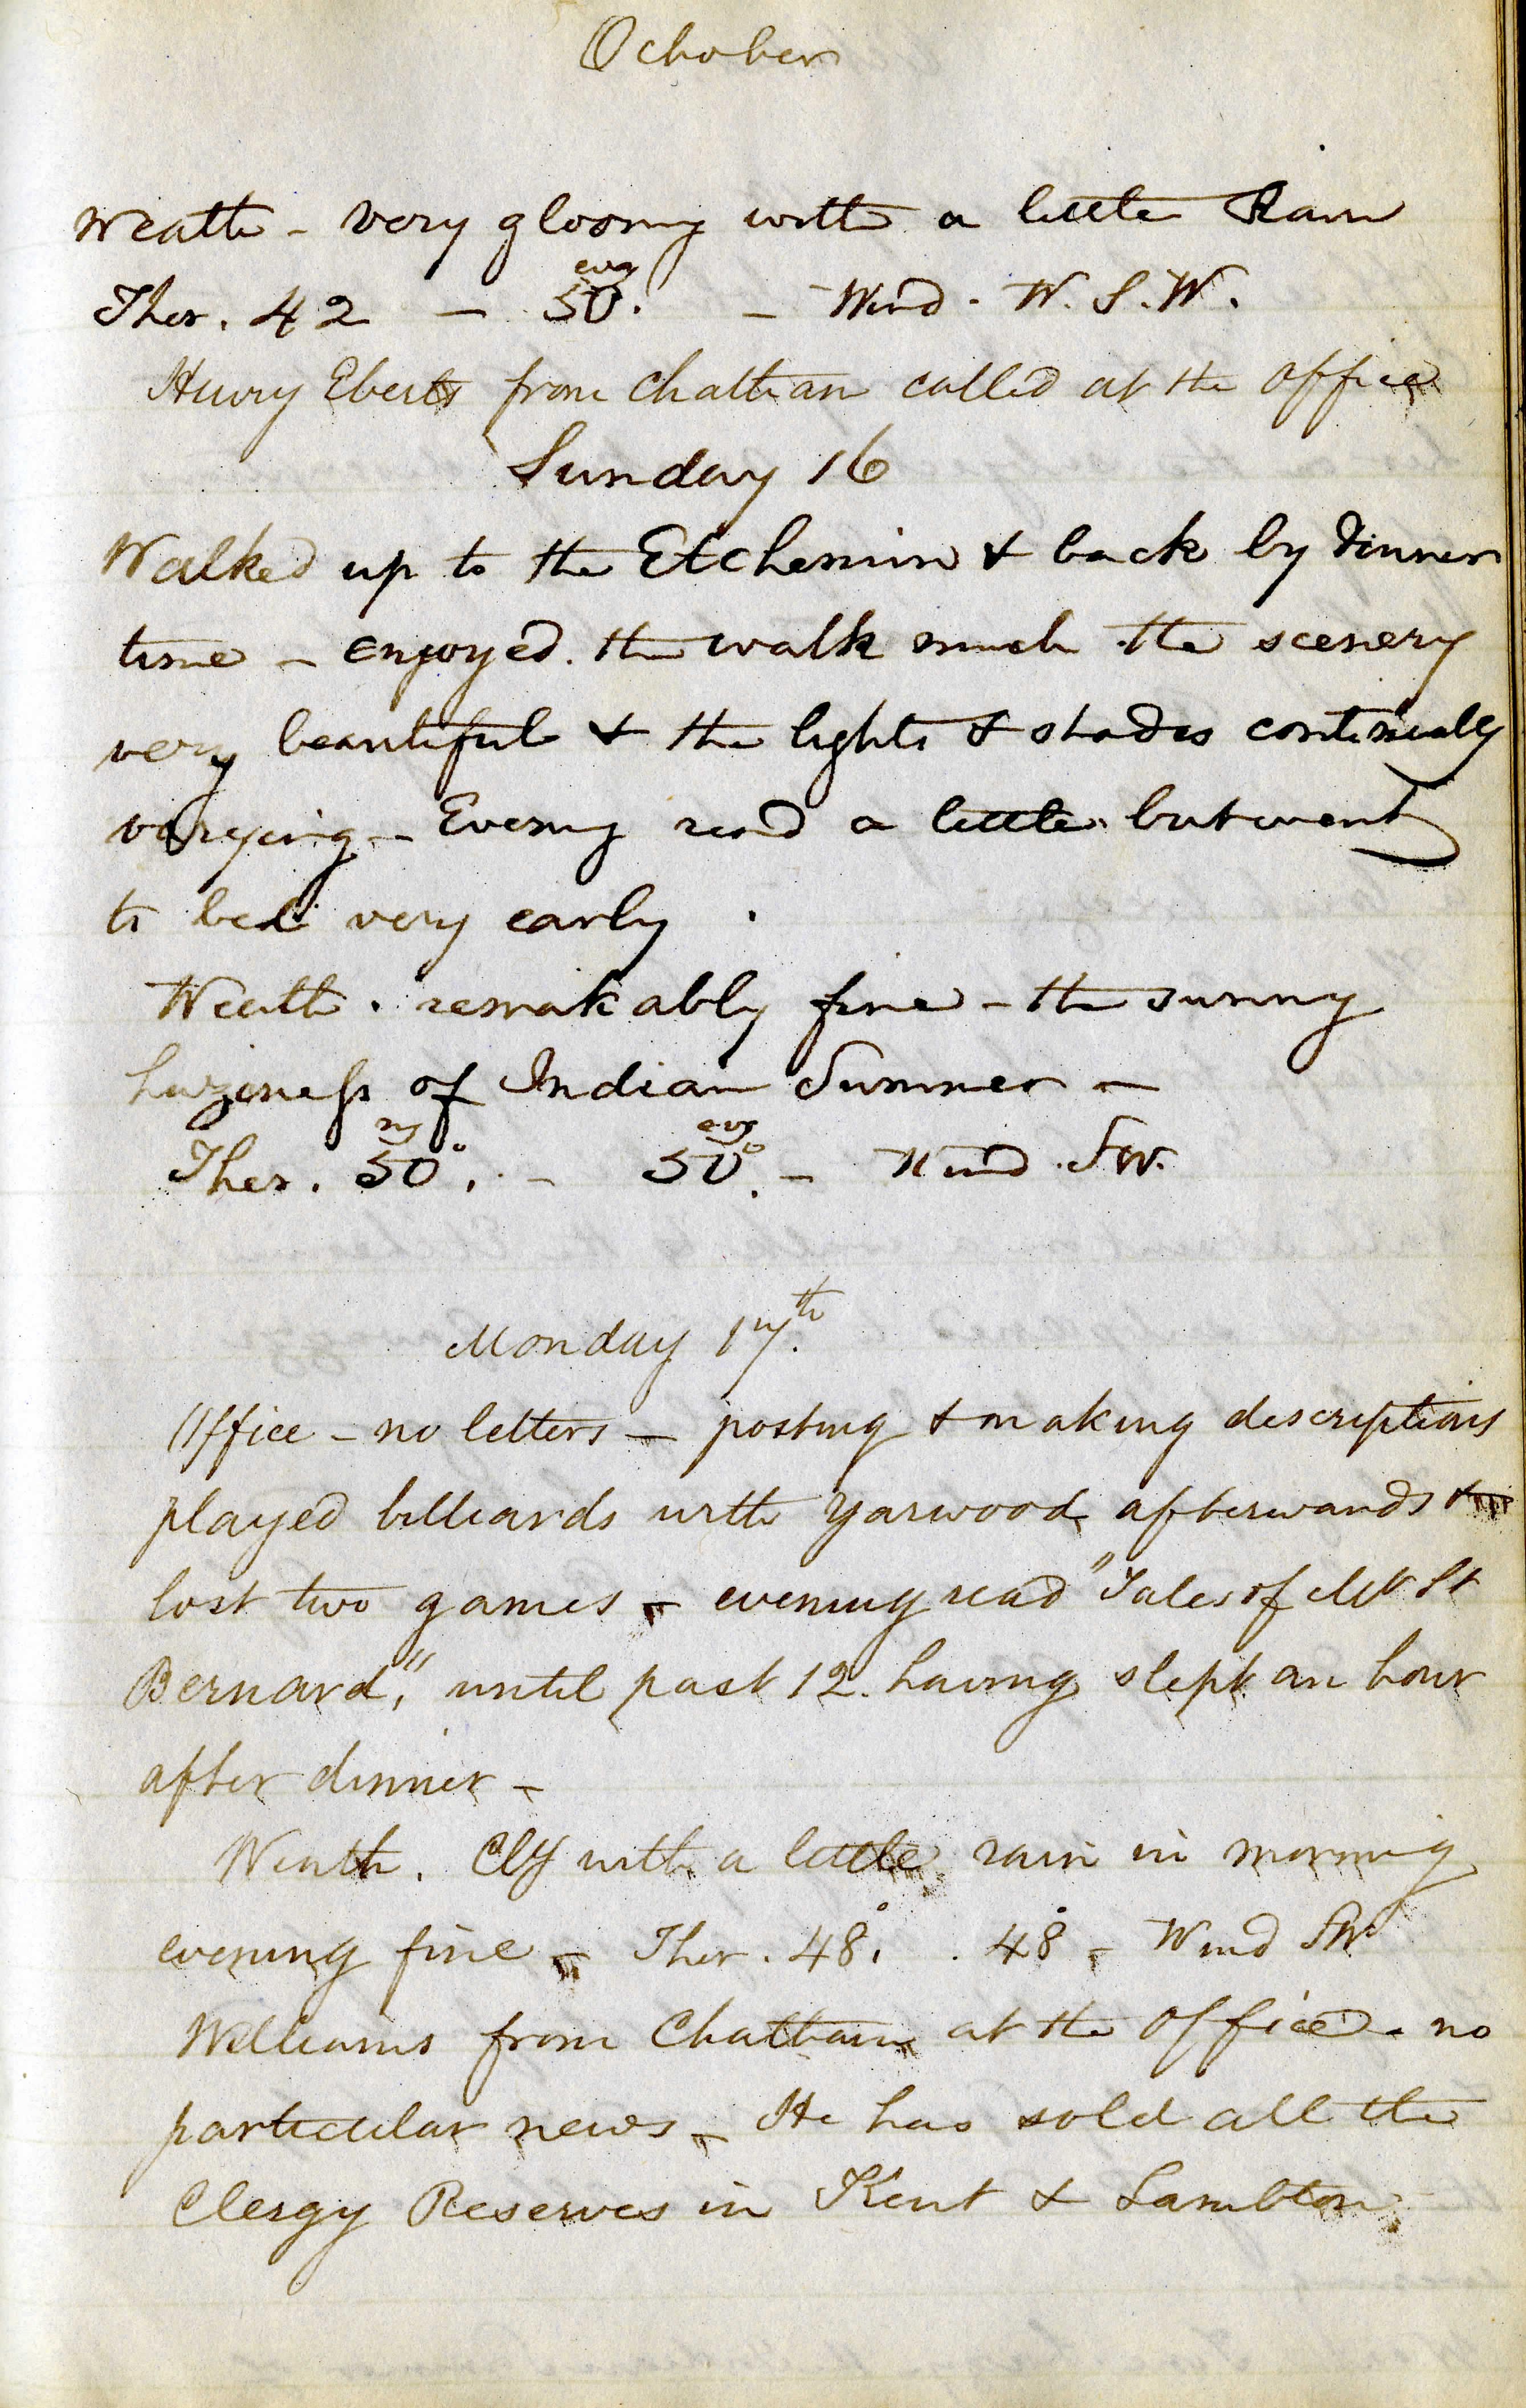 October
Weath - very gloomy with a little Rain
Ther. 42 - evg 50. - Wind - W. S. W.
Henry Eberts from Chatham called at the office
Sunday 16
Walked up to the Etchemin & back by dinner
time - enjoyed the walk much the scenery
very beautiful & the lights & shades continually
varying - Evening read a little but went
to bed very early.
Weath. remarkably fine - the sunny
haziness of Indian Summer -
Ther. mg 50°. - evg 50°. - Wind. SW.
Monday 17th.
Office - no letters - posting & making descriptions
played billiards with Yarwood afterwards &
lost two games - evening read "Tales of Mt St
Bernard," until past 12. having slept an hour
after dinner -
Weath. Cly with a little rain in morning
evening fine - Ther. 48°. . 48° - Wind SW
Williams from Chatham at the office - no
particular news - He has sold all the
Clergy Reserves in Kent & Lambton.